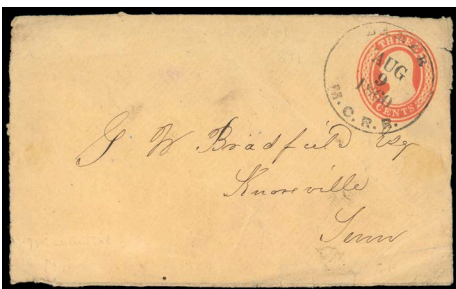 THREE
AUG
9
1860
CENTS
M. C. R. R.
G W Bradfield Esq
Knoxville
Tenn